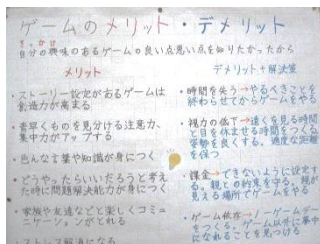 ゲームのメリット・デメリット
きっかけ
自分の興味のあるゲームの良い点悪い点を知りたかったから
メリット
・ストーリー設定があるゲームは
創造力が高まる
・素早くものを見分ける注意力、
集中力がアップする
・色んな言葉や知識が身につく
・どうやったらいいだろうと考え
た時に問題解決能力が身につく
・家族や友達などと楽しくコミュ
ニケーションがとれる
・ストレス解消になる
デメリット+解決策
・時間を失う→やるべきことを
終わらせてからゲームをやる
・視力の低下→遠くを見る時間
と目を休ませる時間をつくる
姿勢を良くする。適度な距離
を保つ
・課金→できないように設定す
る。親との約束を守る。親が
見える場所でゲームをやる
・ゲーム依存→ノーゲームデー
をつくる。ゲーム以外に夢中
になれることを見つける